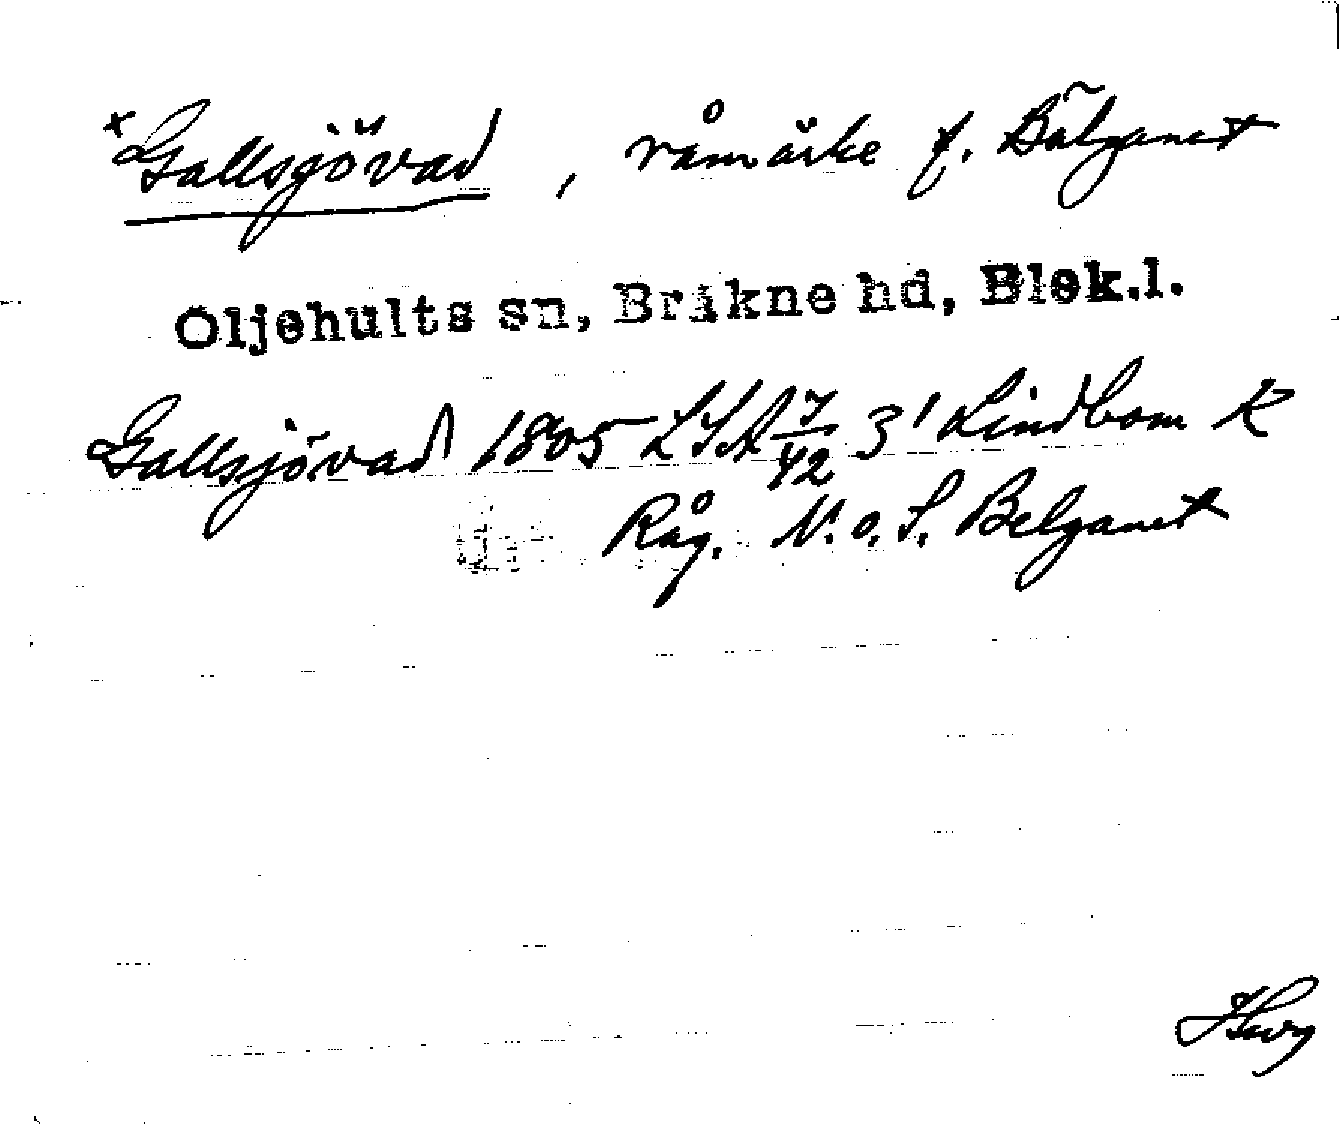 *Gallsjövad, råmärke f. Bälganet
Oljehults sn, Bräkne hd, Blek.l.
Gallsjövad 1805 LSA 7/42 3' Lindbom K
Råg. N. o. S. Belganet